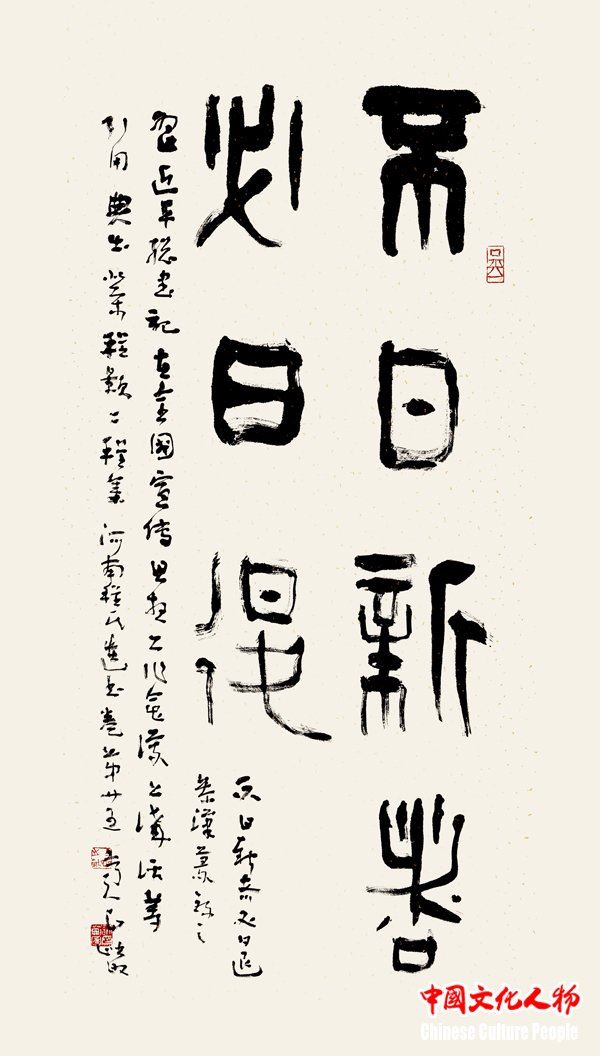 不日新者
必日退
不日新者必日退
習近平總書記在全國宣传思想工作會議上講話等
引用典出宋程顥二程集河南程氏遺書卷第廿五
中國文化人物
Chinese Culture People